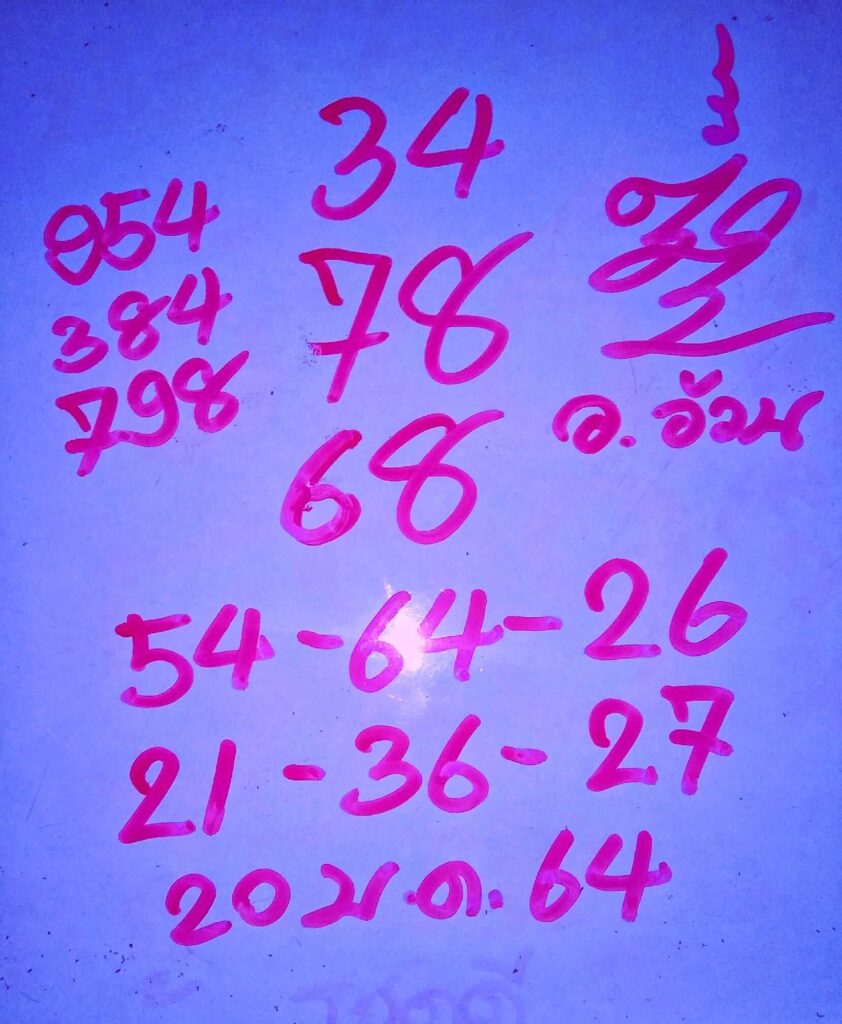 34
954
384
798
78
68
อ.อ้วน
54-64-26
21-36-27
20 ม.ค. 64